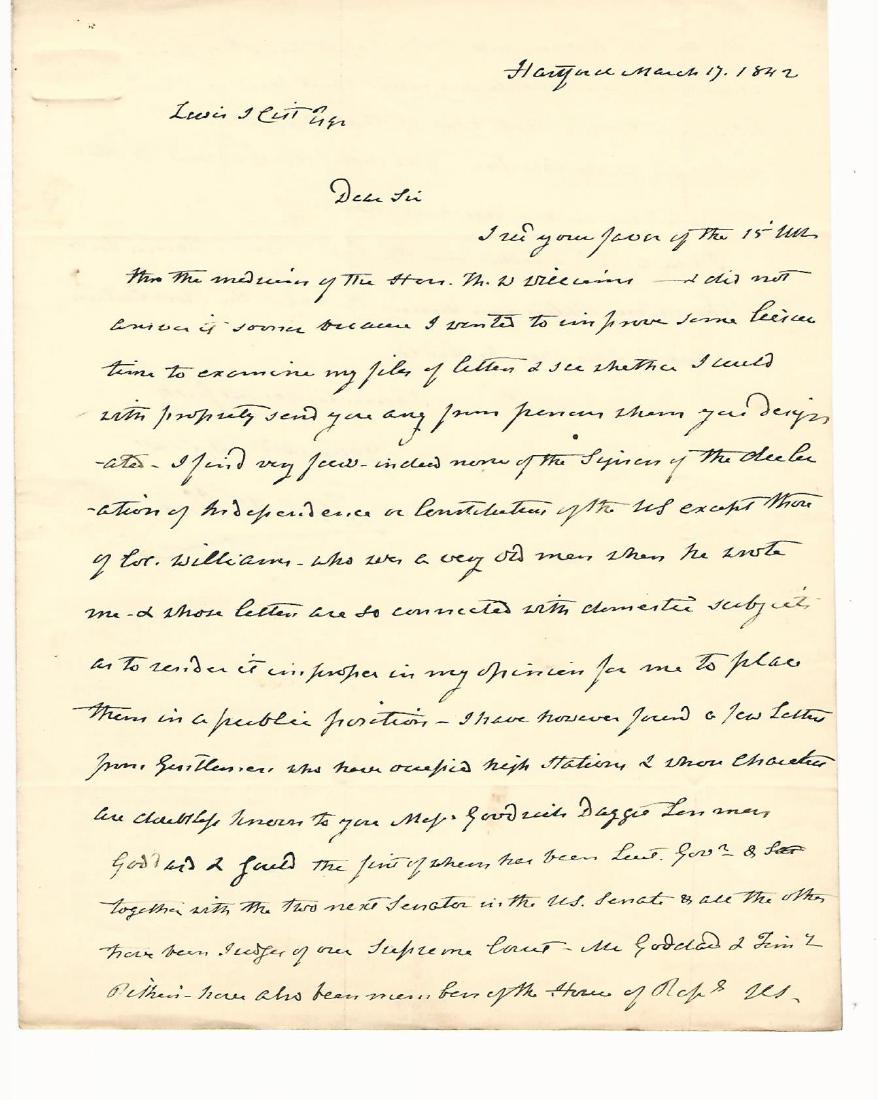 Hartford March 17. 1842
Lewis J Cist Esqr
Dear Sir
I recd your favor of the 15th Ult
thro the medium of the Hon. Th. W Williams — I did not
answer it sooner because I wanted to improve some leisure
time to examine my files of letters & see whether I could
with propriety send you any from persons whom you design
-ated - I find very few - indeed none of the Signers of the decler
-ation of Independence or Constitution of the US except those
of Col. Williams - who was a very old man when he wrote
me - & whose letters are so connected with domestic subjects
as to render it improper in my opinion for me to place
them in a public position - I have however found a few Letters
from Gentlemen who have occupied high Stations & whose Character
are doubtless known to you Messrs Goodrich Daggett Lanman
Goddard & Gould the first of whom has been Lieut. Govr &
together with the two next Senator in the U.S. Senate & all the other
have been Judges of our Supreme Court - Mr Goddard & Timy
Pitkin - have also been members of the House of Reps US.